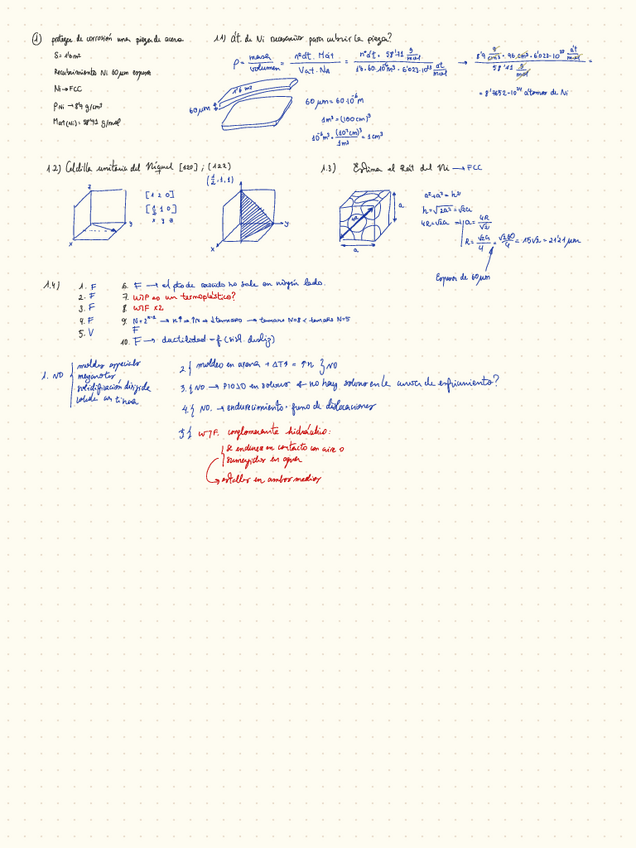 ① proteger de corrosión una pieza de acero.
S = 1'6 m²
Recubrimiento Ni 60 μm espesor
Ni → FCC
ρ Ni → 8'9 g/cm³
Mat(Ni) = 58'71 g/mol
1.1) át. de Ni necesarios para cubrir la pieza?
ρ = masa/volumen = nº át. Mat / Vat · Na = nº át · 58'71 g/mol / 1'6 · 60·10⁻⁶ m³ · 6'023·10²³ át/mol → 8'9 g/cm³ · 96 cm³ · 6'023·10²³ át/mol / 58'71 g/mol =
= 8'7652·10²⁴ átomos de Ni
1'6 m²
60 μm
60 μm = 60·10⁻⁶ m
1 m³ = (100 cm)³
10⁻⁶ m³ · (10² cm)³ / 1 m³ = 1 cm³
1.2) Celdilla unitaria del Níquel [120] ; (122)
[1 2 0]
[½ 1 0]
x y z
z
y
x
(½, 1, 1)
z
y
x
1.3) Estima el Rát del Ni → FCC
a
a
a² + a² = h²
h = √2a² = √2 a
4R = √2 a → a = 4R/√2
R = √2 a / 4 = √2 60 / 4 = 15√2 = 21'21 μm
Espesor de 60 μm
1.4)
1. F
2. F
3. F
4. F
5. V
6. F → el pto de cascado no sale en ningún lado.
7. WTF es un termoplástico?
8. WTF x2
9. N = 2ⁿ⁻¹ → n↑ → ↑N → ↓tamaño → tamaño N=8 < tamaño N=5
F
10. F → ductilidad = f (sist desliz)
1. NO
moldes especiales
mazarotas
solidificación dirigida
colada en línea
2. { moldeo en arena → ΔT↑ = ↑n } NO
3. { NO → PIDID en solvus ← no hay solvus en la curva de enfriamiento?
4. { NO. → endurecimiento · freno de dislocaciones
5. { WTF. conglomerante hidráulico:
Se endurece en contacto con aire o
sumergidos en agua
→ estables en ambos medios